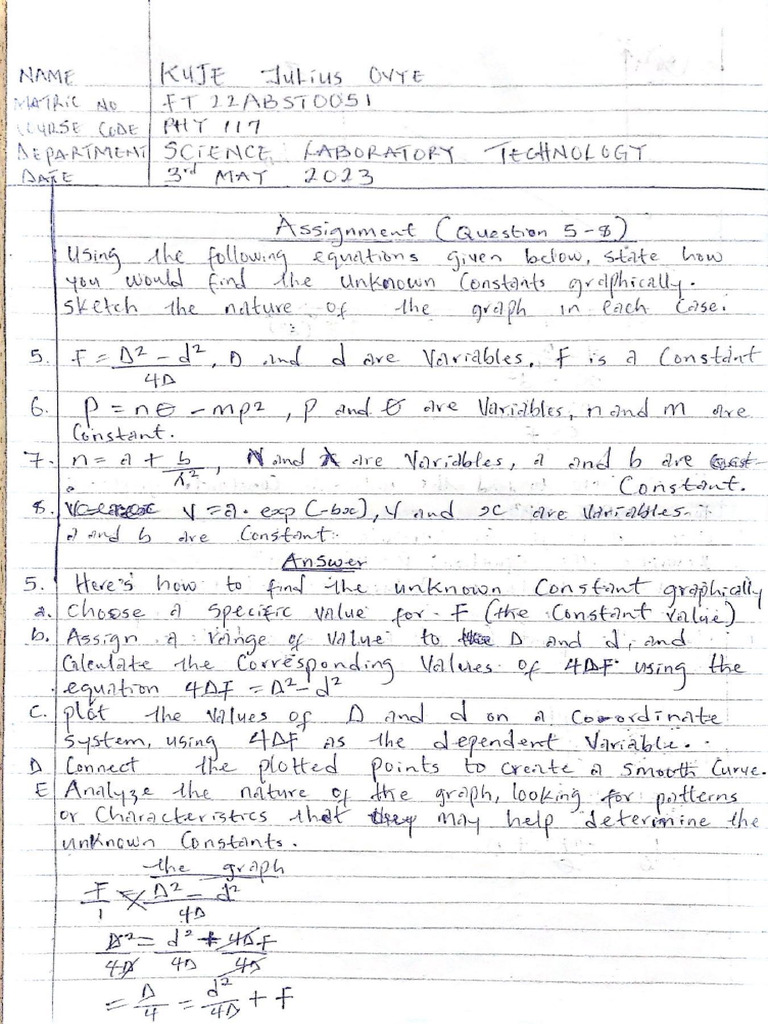 NAME KUJE Julius OVYE
MATRIC NO FT 22ABST0051
COURSE CODE PHY 117
DEPARTMENT SCIENCE LABORATORY TECHNOLOGY
DATE 3rd MAY 2023
Assignment (Question 5-8)
Using the following equations given below, state how
you would find the unknown Constants graphically.
Sketch the nature of the graph in each case.
5. F = D² - d² / 4D, D and d are Variables, F is a Constant
6. P = nθ - mp2, P and θ are Variables, n and m are
Constant.
7. n = a + b/λ², N and λ are Variables, a and b are
Constant.
8. V = a. exp (-bx), V and x are Variables.
a and b are Constant.
Answer
5. Here's how to find the unknown Constant graphically
a. Choose a specific value for F (the Constant value)
b. Assign a range of value to D and d, and
Calculate the Corresponding Values of 4DF using the
equation 4DF = D² - d²
C. plot the values of D and d on a Coordinate
system, using 4DF as the dependent Variable.
D Connect the plotted points to create a smooth Curve.
E Analyze the nature of the graph, looking for patterns
or Characteristics that may help determine the
unknown Constants.
the graph
F/1 = D² - d² / 4D
D²/4D = d²/4D + 4DF/4D
= D/4 = d²/4D + F